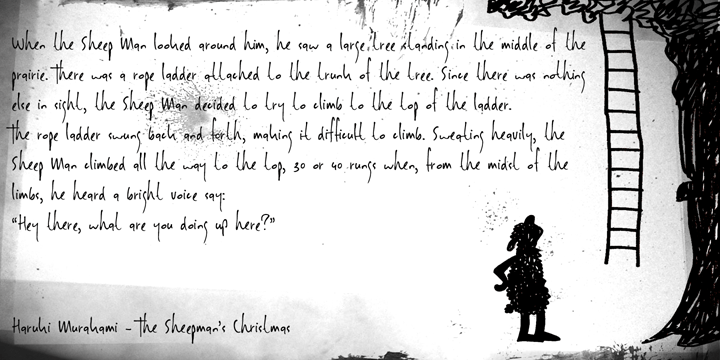 When the Sheep Man looked around him, he saw a large tree standing in the middle of the
prairie. There was a rope ladder attached to the trunk of the tree. Since there was nothing
else in sight, the Sheep Man decided to try to climb to the top of the ladder.
The rope ladder swung back and forth, making it difficult to climb. Sweating heavily, the
Sheep Man climbed all the way to the top, 30 or 40 rungs when, from the midst of the
limbs, he heard a bright voice say:
“Hey there, what are you doing up here?”
Haruki Murakami - The Sheepman's Christmas